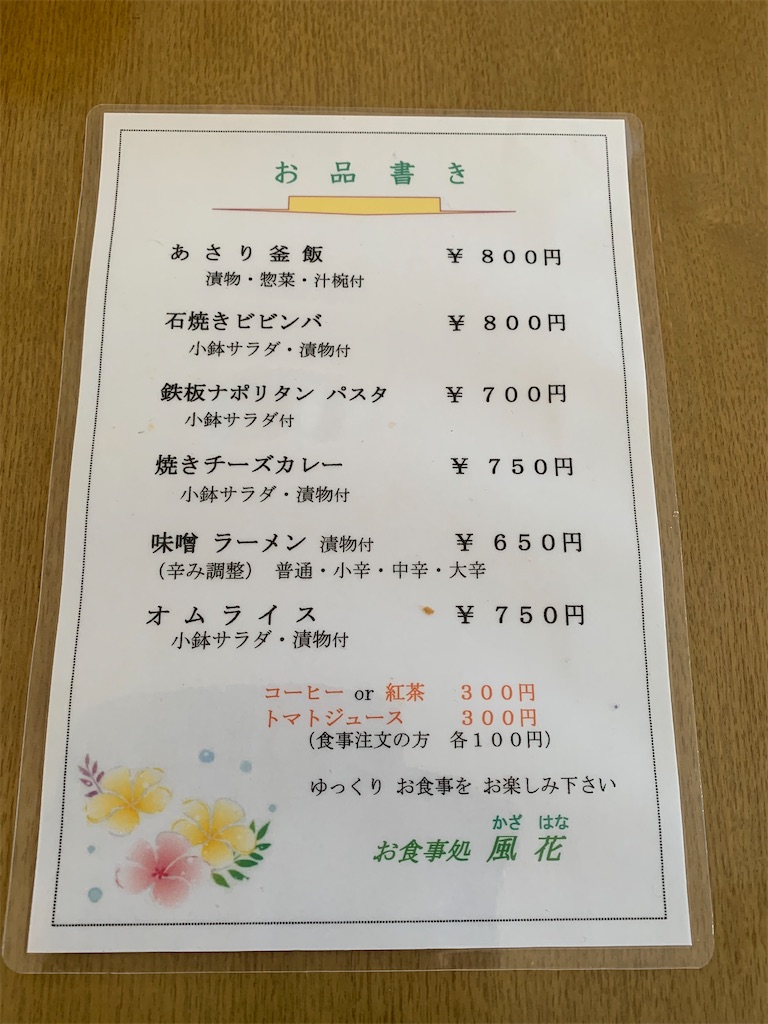 お品書き
あさり釜飯 ￥８００円
漬物・惣菜・汁椀付
石焼きビビンバ ￥８００円
小鉢サラダ・漬物付
鉄板ナポリタン パスタ ￥７００円
小鉢サラダ付
焼きチーズカレー ￥７５０円
小鉢サラダ・漬物付
味噌 ラーメン 漬物付 ￥６５０円
（辛み調整） 普通・小辛・中辛・大辛
オムライス ￥７５０円
小鉢サラダ・漬物付
コーヒー or 紅茶 ３００円
トマトジュース ３００円
（食事注文の方 各１００円）
ゆっくり お食事を お楽しみ下さい
かざ はな
お食事処 風花